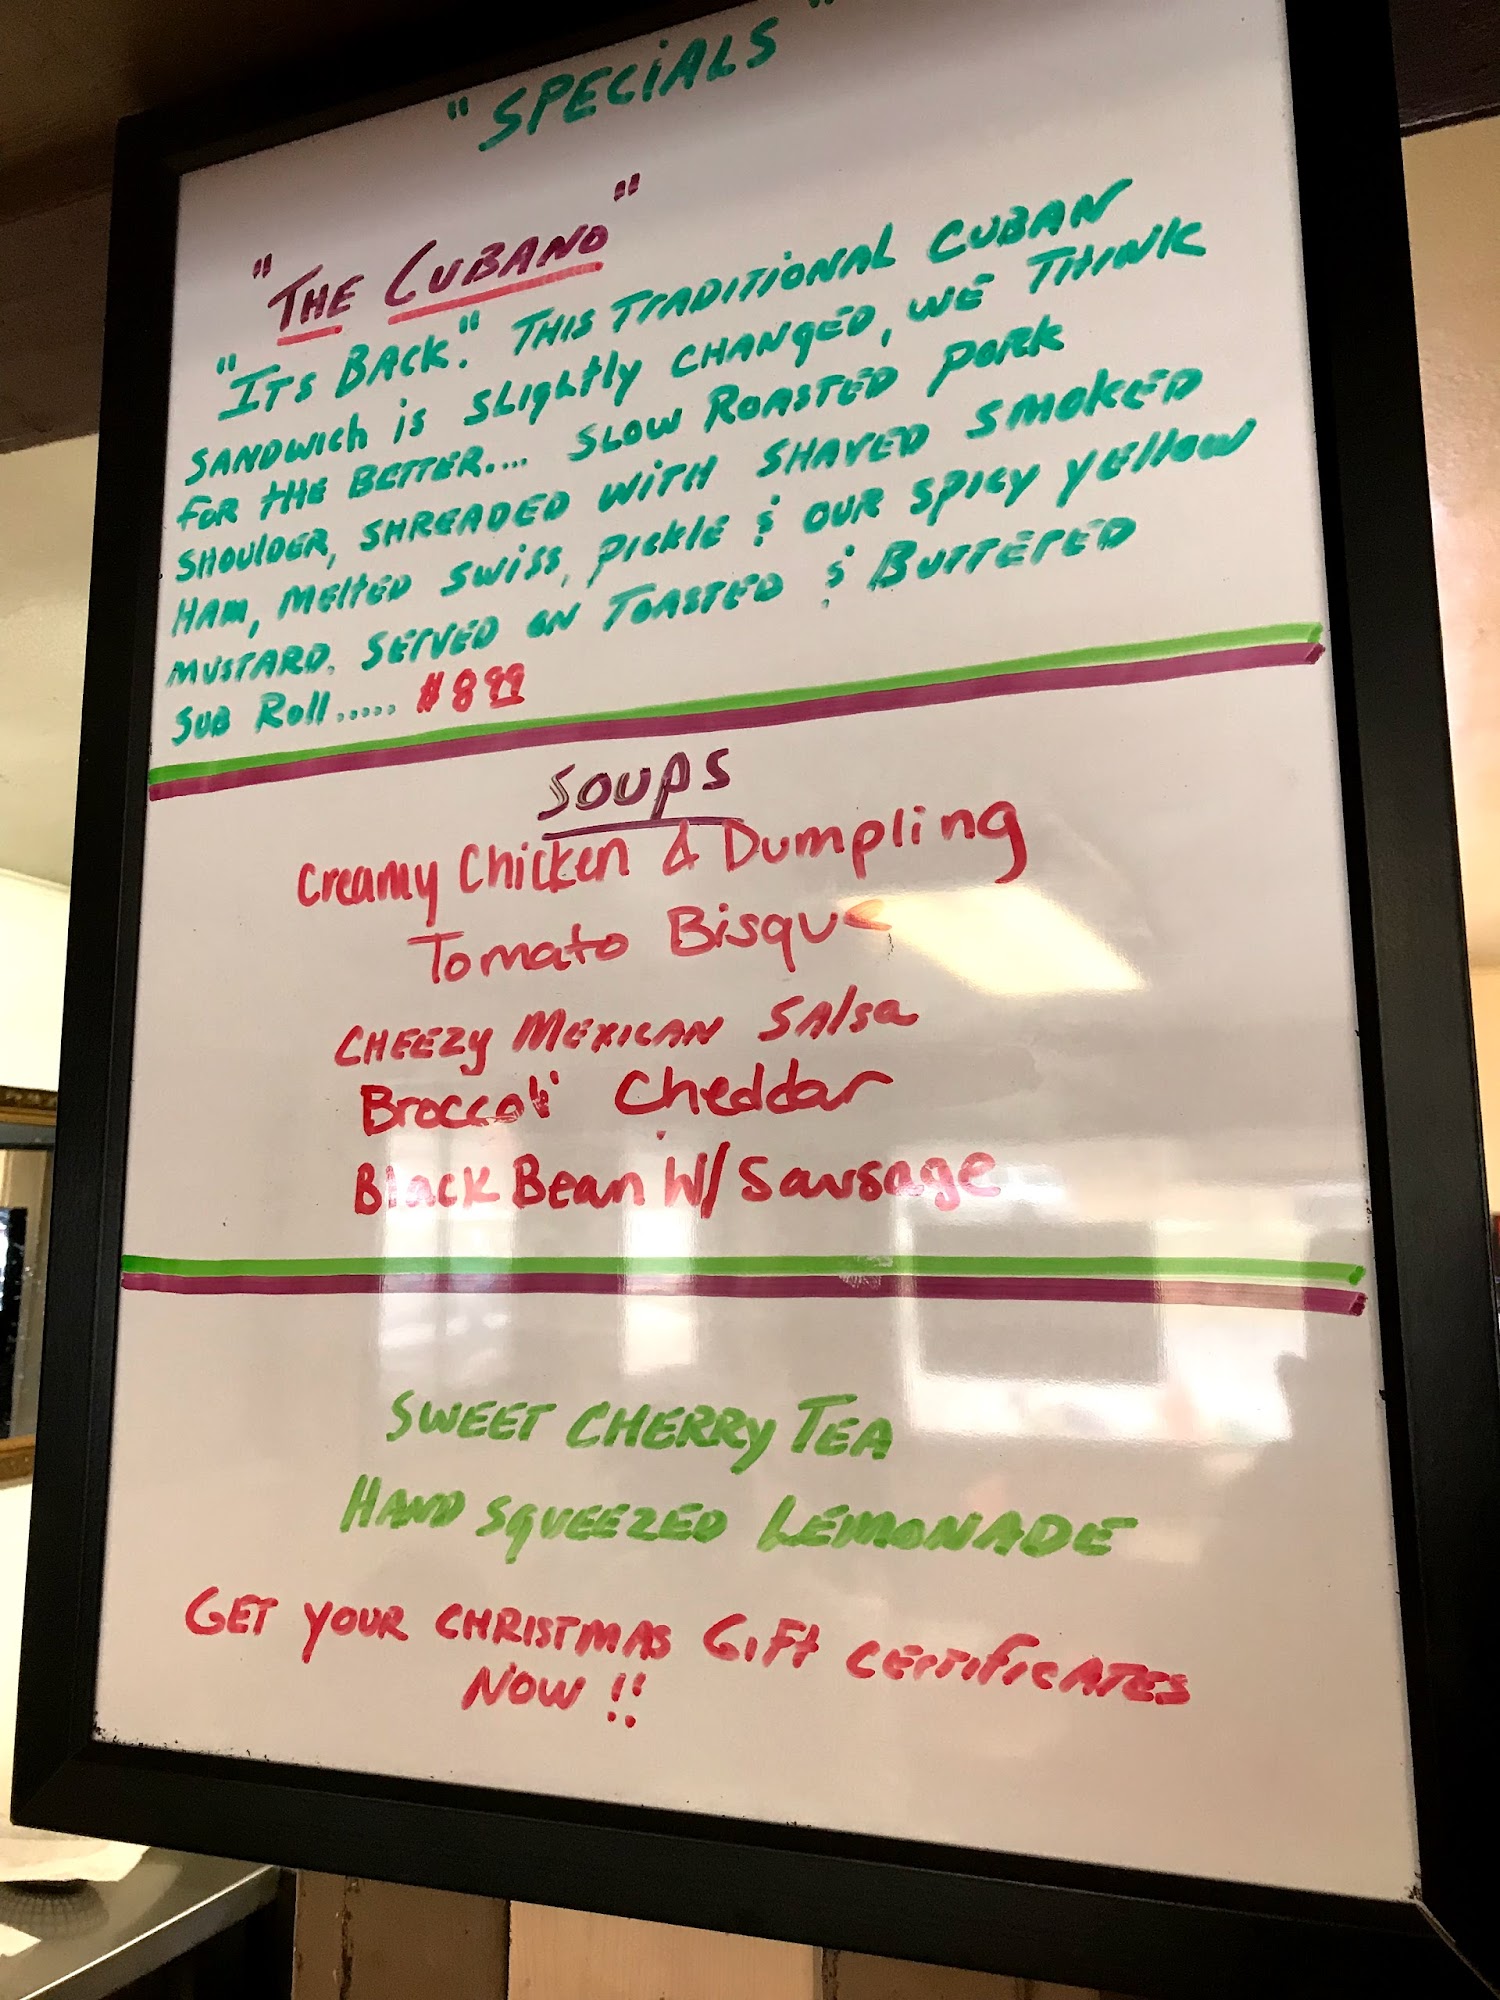 "SPECiALS"
"THE CUBANO"
"ITS BACK." THIS TRADITIONAL CUBAN
SANDWICH iS SLIGHTLY CHANGED, WE THINK
FOR THE BETTER.... SLOW ROASTED PORK
SHOULDER, SHREADED WITH SHAVED SMOKED
HAM, MELTED SWISS, PICKLE & OUR SPICY YELLOW
MUSTARD. SERVED ON TOASTED & BUTTERED
SUB ROLL..... $8 99
SOUPS
Creamy Chicken & Dumpling
Tomato Bisque
CHEEZY MEXICAN SALSA
Broccoli Cheddar
Black Bean W/ Sausage
SWEET CHERRY TEA
HAND SQUEEZED LEMONADE
GET YOUR CHRISTMAS GIFT CERTIFICATES
NOW !!